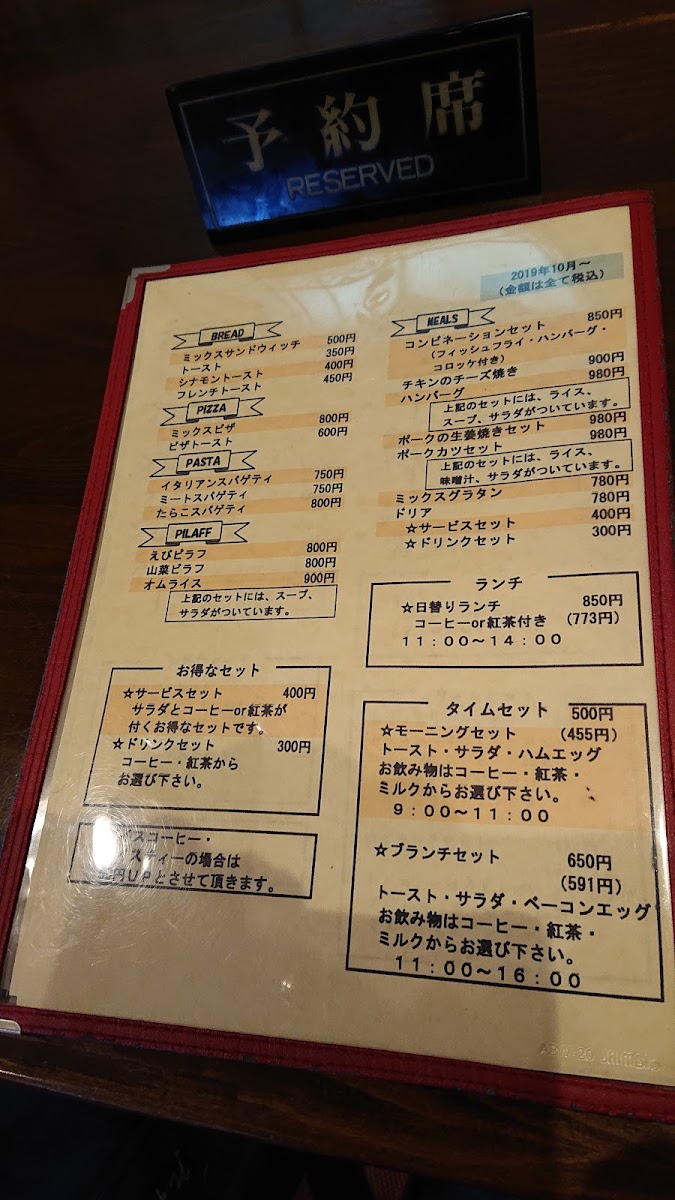 予約席
RESERVED
2019年10月～
(金額は全て税込)
BREAD
ミックスサンドウィッチ 500円
トースト 350円
シナモントースト 400円
フレンチトースト 450円
PIZZA
ミックスピザ 800円
ピザトースト 600円
PASTA
イタリアンスパゲティ 750円
ミートスパゲティ 750円
たらこスパゲティ 800円
PILAFF
えびピラフ 800円
山菜ピラフ 800円
オムライス 900円
上記のセットには、スープ、
サラダがついています。
お得なセット
☆サービスセット 400円
サラダとコーヒーor紅茶が
付くお得なセットです。
☆ドリンクセット 300円
コーヒー・紅茶から
お選び下さい。
スコーヒー・
スティーの場合は
円UPとさせて頂きます。
MEALS
コンビネーションセット 850円
(フィッシュフライ・ハンバーグ・
コロッケ付き)
チキンのチーズ焼き 900円
ハンバーグ 980円
上記のセットには、ライス、
スープ、サラダがついています。
ポークの生姜焼きセット 980円
ポークカツセット 980円
上記のセットには、ライス、
味噌汁、サラダがついています。
ミックスグラタン 780円
ドリア 780円
☆サービスセット 400円
☆ドリンクセット 300円
ランチ
☆日替りランチ 850円
コーヒーor紅茶付き (773円)
11：00～14：00
タイムセット
500円
☆モーニングセット (455円)
トースト・サラダ・ハムエッグ
お飲み物はコーヒー・紅茶・
ミルクからお選び下さい。
9：00～11：00
☆ブランチセット 650円
(591円)
トースト・サラダ・ベーコンエッグ
お飲み物はコーヒー・紅茶・
ミルクからお選び下さい。
11：00～16：00